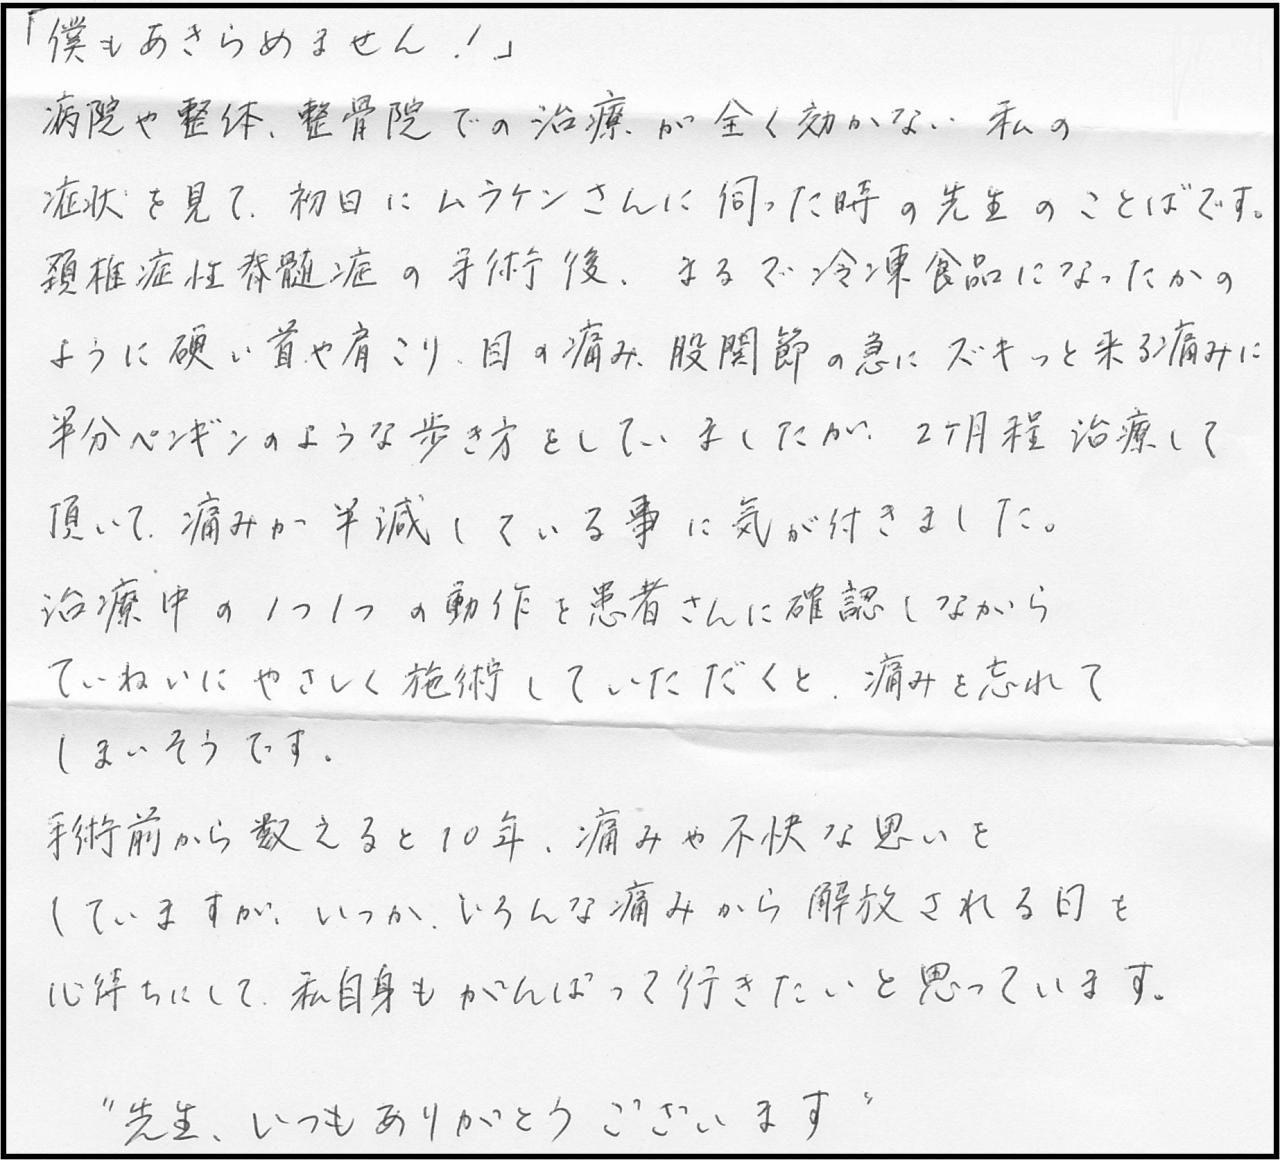 「僕もあきらめません！」
病院や整体、整骨院での治療が全く効かない私の
症状を見て、初日にムラケンさんに伺った時の先生のことばです。
頚椎症性脊髄症の手術後、まるで冷凍食品になったかの
ように硬い首や肩こり、目の痛み、股関節の急にズキっと来る痛みに
半分ペンギンのような歩き方をしていましたが、2ケ月程治療して
頂いて、痛みが半減している事に気が付きました。
治療中の1つ1つの動作を患者さんに確認しながら
ていねいにやさしく施術していただだくと、痛みを忘れて
しまいそうです。
手術前から数えると10年、痛みや不快な思いを
していますが、いつか、いろんな痛みから解放される日を
心待ちにして、私自身もがんばって行きたいと思っています。
"先生、いつもありがとうございます"